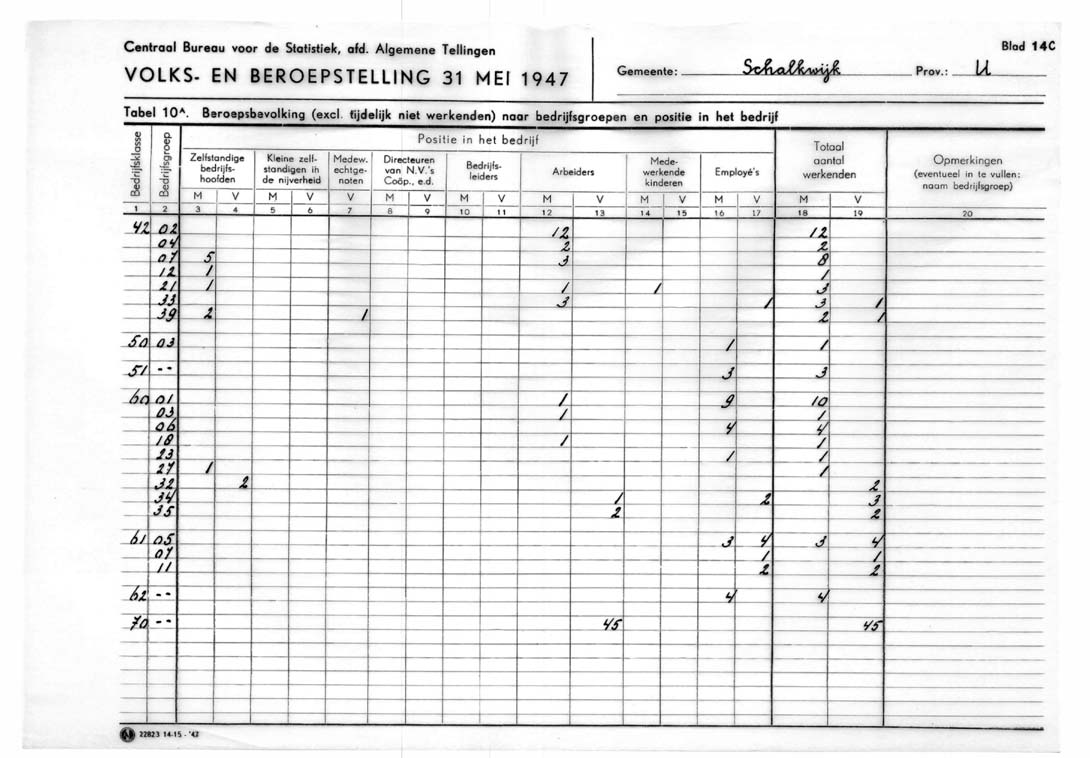 Centraal Bureau voor de Statistiek, afd. Algemene Tellingen
VOLKS- EN BEROEPSTELLING 31 MEI 1947
Gemeente: Schalkwijk Prov.: U
Blad 14C
Tabel 10A. Beroepsbevolking (excl. tijdelijk niet werkenden) naar bedrijfsgroepen en positie in het bedrijf
Bedrijfsklasse
Bedrijfsgroep
Positie in het bedrijf
Zelfstandige
bedrijfs-
hoofden
Kleine zelf-
standigen in
de nijverheid
Medew.
echtge-
noten
Directeuren
van N.V.'s
Coöp., e.d.
Bedrijfs-
leiders
Arbeiders
Mede-
werkende
kinderen
Employé's
Totaal
aantal
werkenden
Opmerkingen
(eventueel in te vullen:
naam bedrijfsgroep)
M V M V V M V M V M V M V M V M V
1 2 3 4 5 6 7 8 9 10 11 12 13 14 15 16 17 18 19 20
42 02 12 12
04 2 2
07 5 3 8
12 1 1
21 1 1 1 3
33 3 1 3 1
39 2 1 2 1
50 03 1 1
51 -- 3 3
60 01 1 9 10
03 1 1
06 4 4
18 1 1
23 1 1
27 1 1
32 2 2
34 1 2 3
35 2 2
61 05 3 4 3 4
07 1 1
11 2 2
62 -- 4 4
70 -- 45 45
22823 14-15 - '47